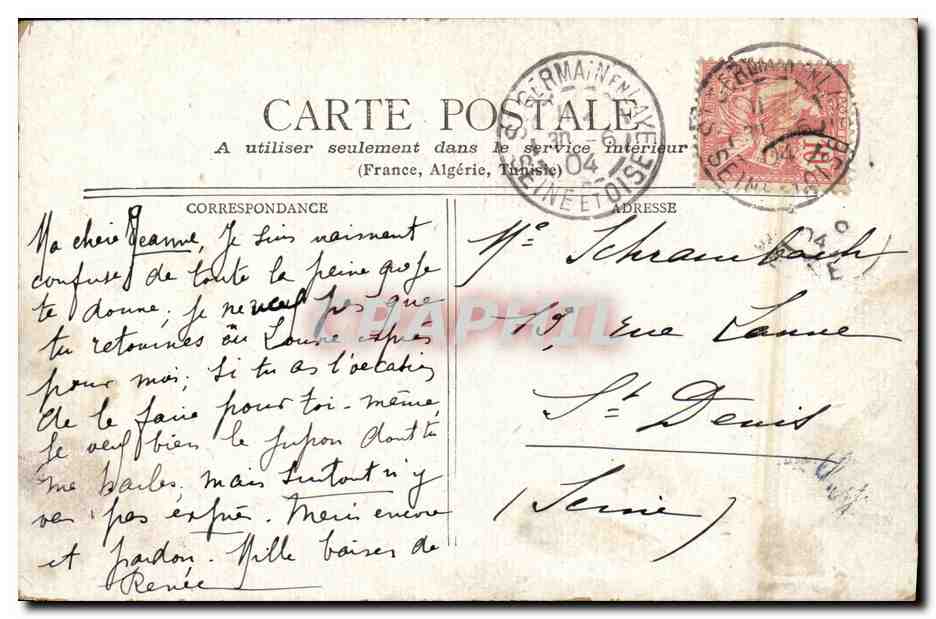 CARTE POSTALE
A utiliser seulement dans le service intérieur
(France, Algérie, Tunisie)
ST GERMAIN EN LAYE
30 - 6
04
SEINE ET OISE
CORRESPONDANCE
Ma chere Jeanne, Je suis vraiment
confuse de toute la peine que je
te donne, je ne veux pas que
tu retournes au Louvre exprès
pour moi; Si tu as l'occasion
de le faire pour toi-même,
je veux bien le jupon dont tu
me parles, mais surtout n'y
vas pas exprès. Merci encore
et pardon. Mille baisers de
Renée
ADRESSE
Me Schrambach
13, rue Lanne
St Denis
(Seine)
CPAPHIL